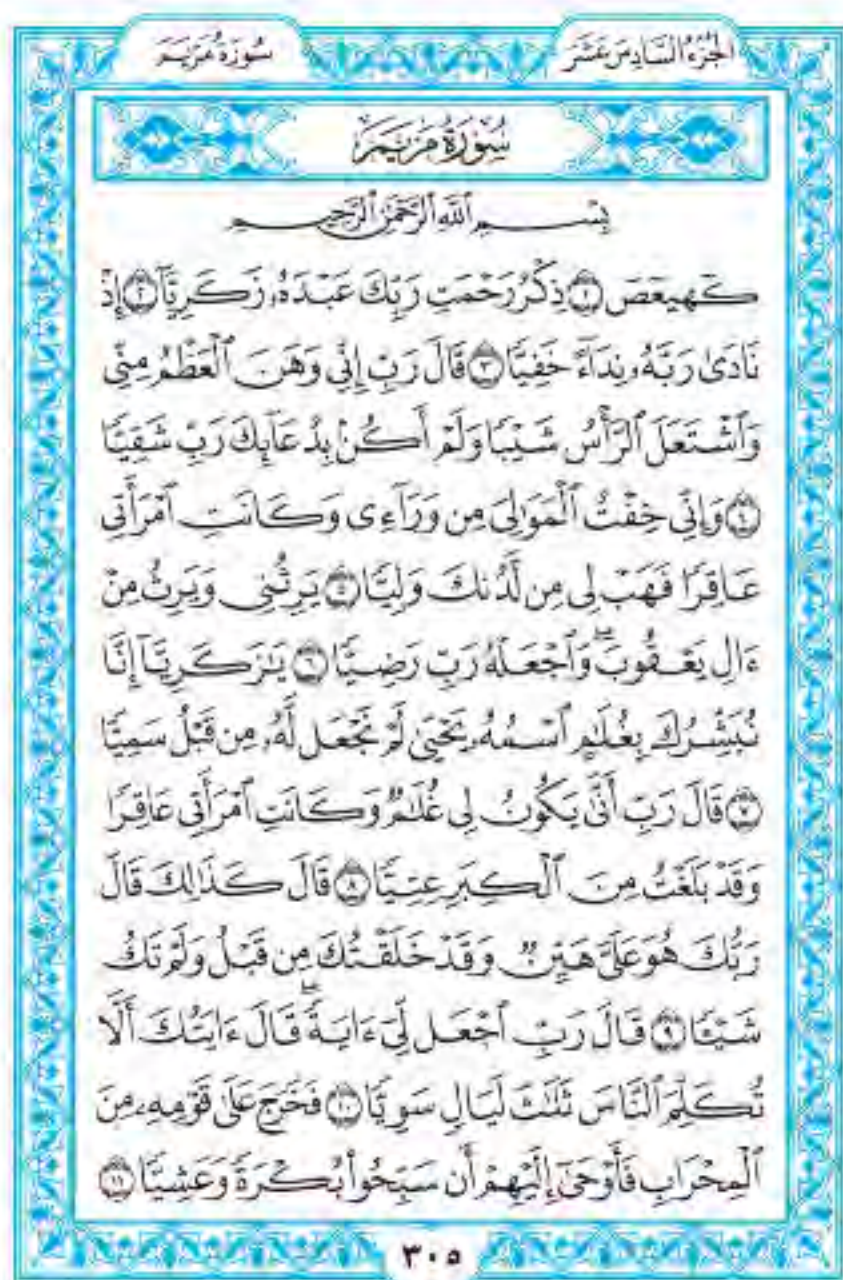 الجزء السادس عشر
سورة مريم
سُورَةُ مَرْيَمَ
بِسْمِ ٱللَّهِ ٱلرَّحْمَٰنِ ٱلرَّحِيمِ
كٓهيعٓصٓ ١ ذِكْرُ رَحْمَتِ رَبِّكَ عَبْدَهُۥ زَكَرِيَّآ ٢ إِذْ
نَادَىٰ رَبَّهُۥ نِدَآءً خَفِيًّا ٣ قَالَ رَبِّ إِنِّي وَهَنَ ٱلْعَظْمُ مِنِّي
وَٱشْتَعَلَ ٱلرَّأْسُ شَيْبًا وَلَمْ أَكُنۢ بِدُعَآئِكَ رَبِّ شَقِيًّا
٤ وَإِنِّي خِفْتُ ٱلْمَوَٰلِيَ مِن وَرَآءِي وَكَانَتِ ٱمْرَأَتِي
عَاقِرًا فَهَبْ لِي مِن لَّدُنكَ وَلِيًّا ٥ يَرِثُنِي وَيَرِثُ مِنْ
ءَالِ يَعْقُوبَۖ وَٱجْعَلْهُ رَبِّ رَضِيًّا ٦ يَٰزَكَرِيَّآ إِنَّا
نُبَشِّرُكَ بِغُلَٰمٍ ٱسْمُهُۥ يَحْيَىٰ لَمْ نَجْعَل لَّهُۥ مِن قَبْلُ سَمِيًّا
٧ قَالَ رَبِّ أَنَّىٰ يَكُونُ لِي غُلَٰمٌ وَكَانَتِ ٱمْرَأَتِي عَاقِرًا
وَقَدْ بَلَغْتُ مِنَ ٱلْكِبَرِ عِتِيًّا ٨ قَالَ كَذَٰلِكَ قَالَ
رَبُّكَ هُوَ عَلَيَّ هَيِّنٌ وَقَدْ خَلَقْتُكَ مِن قَبْلُ وَلَمْ تَكُ
شَيْـًٔا ٩ قَالَ رَبِّ ٱجْعَل لِّيٓ ءَايَةًۖ قَالَ ءَايَتُكَ أَلَّا
تُكَلِّمَ ٱلنَّاسَ ثَلَٰثَ لَيَالٍ سَوِيًّا ١٠ فَخَرَجَ عَلَىٰ قَوْمِهِۦ مِنَ
ٱلْمِحْرَابِ فَأَوْحَىٰٓ إِلَيْهِمْ أَن سَبِّحُوا۟ بُكْرَةً وَعَشِيًّا ١١
٣٠٥